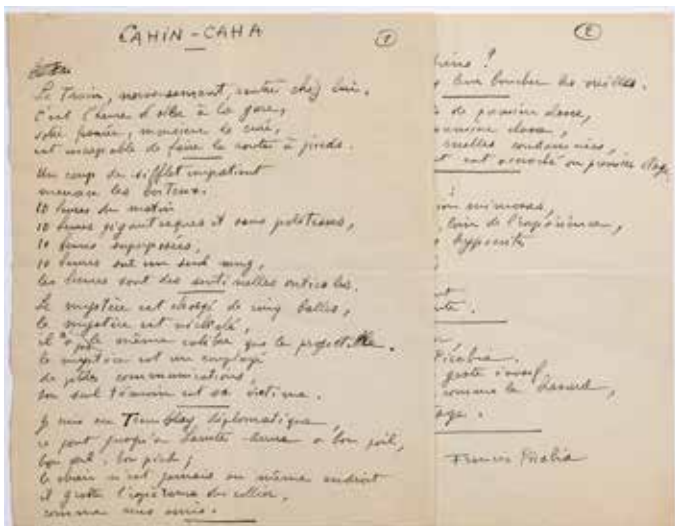 CAHIN-CAHA
1
Le Train, nerveusement, rentre chez lui.
C'est l'heure d'aller à la gare,
votre panier, monsieur le curé,
est incapable de faire la route à pieds.
Un coup de sifflet impatient
menace les boiteux.
10 heures du matin
10 heures gigantesques et sans politesses,
10 heures superposées,
10 heures ont un seul rang,
les heures sont des sentinelles verticales.
Le mystère est chargé de cinq balles,
le mystère est nickelé,
il a le même calibre que le projectile.
le mystère est un employé
de communications,
son seul témoin est sa victime.
Je suis un Tremblay diplomatique,
ce pont jusqu'à Sainte-Anne a bon poil,
bon poil, bon pied;
le chien n'est jamais au même endroit
il gratte du collier,
comme mes amis.
2
leur boucher les oreilles.
de première classe,
première classe,
ruelles condamnées,
est accroché au premier étage
mimosas,
loin de l'expérience,
hypocrite
Picabia.
comme le hasard,
Francis Picabia